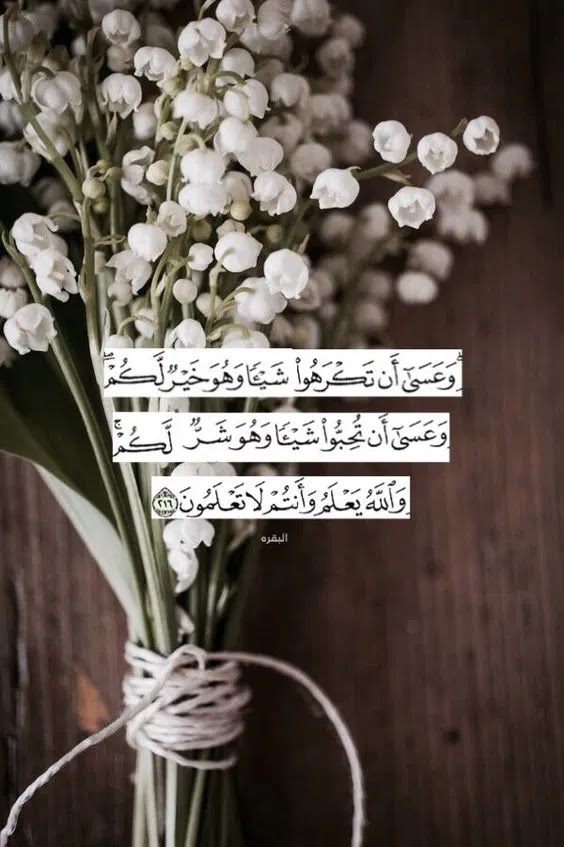 وَعَسَىٰٓ أَن تَكْرَهُوا۟ شَيْـًٔا وَهُوَ خَيْرٌ لَّكُمْ ۖ
وَعَسَىٰٓ أَن تُحِبُّوا۟ شَيْـًٔا وَهُوَ شَرٌّ لَّكُمْ ۗ
وَٱللَّهُ يَعْلَمُ وَأَنتُمْ لَا تَعْلَمُونَ ٢١٦
البقره